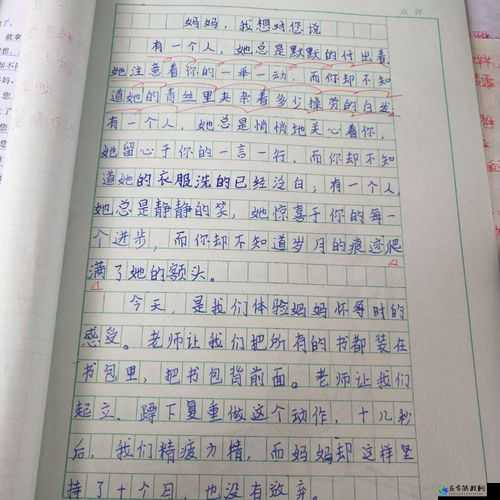 妈妈，我想对您说
有一个人，她总是默默的付出着，
她注意着你的一举一动，而你却不知
道她的青丝里夹杂着多少操劳的白发
有一个人，她总是悄悄地关心着你，
她留心于你的一言一行，而你却不知
道她的衣服洗的已经泛白；有一个人，
她总是静静的笑，她惊喜于你的每一
个进步，而你却不知道岁月的痕迹爬
满了她的额头。
今天，是我们体验妈妈怀孕时的
感受。老师让我们把所有的书都装在
书包里，把书包背前面。老师让我们
起立、蹲下重做这个动作，十几秒
后，我们精疲力精，而妈妈却这样坚
持了十个月，也没有放弃。